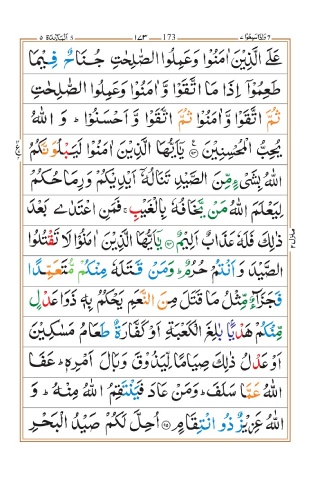 واذاسمعوا ٧ 173 ١٧٣ المآئدة ٥
عَلَى الَّذِيْنَ اٰمَنُوْا وَعَمِلُوا الصّٰلِحٰتِ جُنَاحٌ فِيْمَا
طَعِمُوْٓا اِذَا مَا اتَّقَوْا وَّاٰمَنُوْا وَعَمِلُوا الصّٰلِحٰتِ
ثُمَّ اتَّقَوْا وَّاٰمَنُوْا ثُمَّ اتَّقَوْا وَّاَحْسَنُوْا ؕ وَاللّٰهُ
يُحِبُّ الْمُحْسِنِيْنَ ۞ يٰٓاَيُّهَا الَّذِيْنَ اٰمَنُوْا لَيَبْلُوَنَّكُمُ
اللّٰهُ بِشَيْءٍ مِّنَ الصَّيْدِ تَنَالُهٗٓ اَيْدِيْكُمْ وَرِمَاحُكُمْ
لِيَعْلَمَ اللّٰهُ مَنْ يَّخَافُهٗ بِالْغَيْبِ ۚ فَمَنِ اعْتَدٰى بَعْدَ
ذٰلِكَ فَلَهٗ عَذَابٌ اَلِيْمٌ ۞ يٰٓاَيُّهَا الَّذِيْنَ اٰمَنُوْا لَا تَقْتُلُوا
الصَّيْدَ وَاَنْتُمْ حُرُمٌ ؕ وَمَنْ قَتَلَهٗ مِنْكُمْ مُّتَعَمِّدًا
فَجَزَآءٌ مِّثْلُ مَا قَتَلَ مِنَ النَّعَمِ يَحْكُمُ بِهٖ ذَوَا عَدْلٍ
مِّنْكُمْ هَدْيًاۢ بٰلِغَ الْكَعْبَةِ اَوْ كَفَّارَةٌ طَعَامُ مَسٰكِيْنَ
اَوْ عَدْلُ ذٰلِكَ صِيَامًا لِّيَذُوْقَ وَبَالَ اَمْرِهٖ ؕ عَفَا
اللّٰهُ عَمَّا سَلَفَ ؕ وَمَنْ عَادَ فَيَنْتَقِمُ اللّٰهُ مِنْهُ ؕ وَ
اللّٰهُ عَزِيْزٌ ذُو انْتِقَامٍ ۞ اُحِلَّ لَكُمْ صَيْدُ الْبَحْرِ